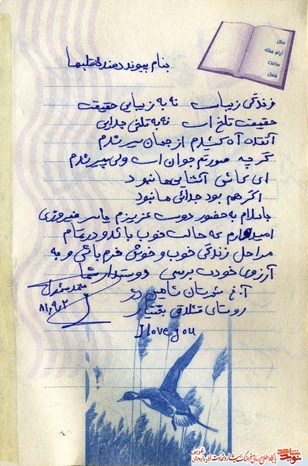 بنام پیوند دهنده قلبها
زندگی زیباست نه به زیبایی حقیقت
حقیقت تلخ است نه به تلخی جدایی
آنقدر آه کشیدم از جهان سیر شدم
گرچه صورتم جوان است ولی پیر شدم
ای کاش آشنایی ها نبود
اگر هم بود جدائی ها نبود
با سلام به حضور دوست عزیزم یاسر فیروزی
امیدوارم که حالت خوب باشد و در تمام
مراحل زندگی خوب و خوش و خرم باشی و به
آرزوی خودت برسی دوستدار شما
روستای قشلاق
I love you